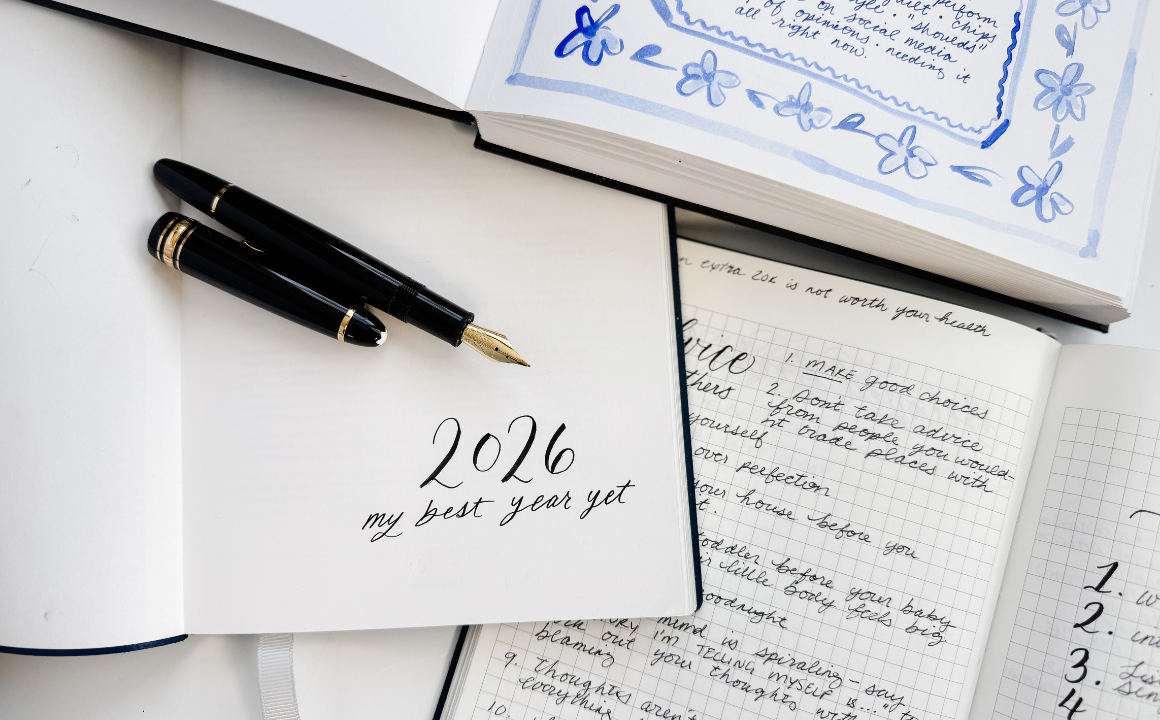 perform
diet · chips
style · "shoulds"
on social media
of opinions · needing it
all right now.
2026
my best year yet
extra 20k is not worth your health
vice
thers
yourself
over perfection
your house before you
t.
toddler before your baby
ir little body feels big
goodnight
mind is spiraling – say
I'm TELLING MYSELF is..."
out your thoughts with
blaming
9. Thoughts aren't
everything
10.
1. MAKE good choices
2. Don't take advice
from people you would-
nt trade places with
1. w
2. in
3. List
4